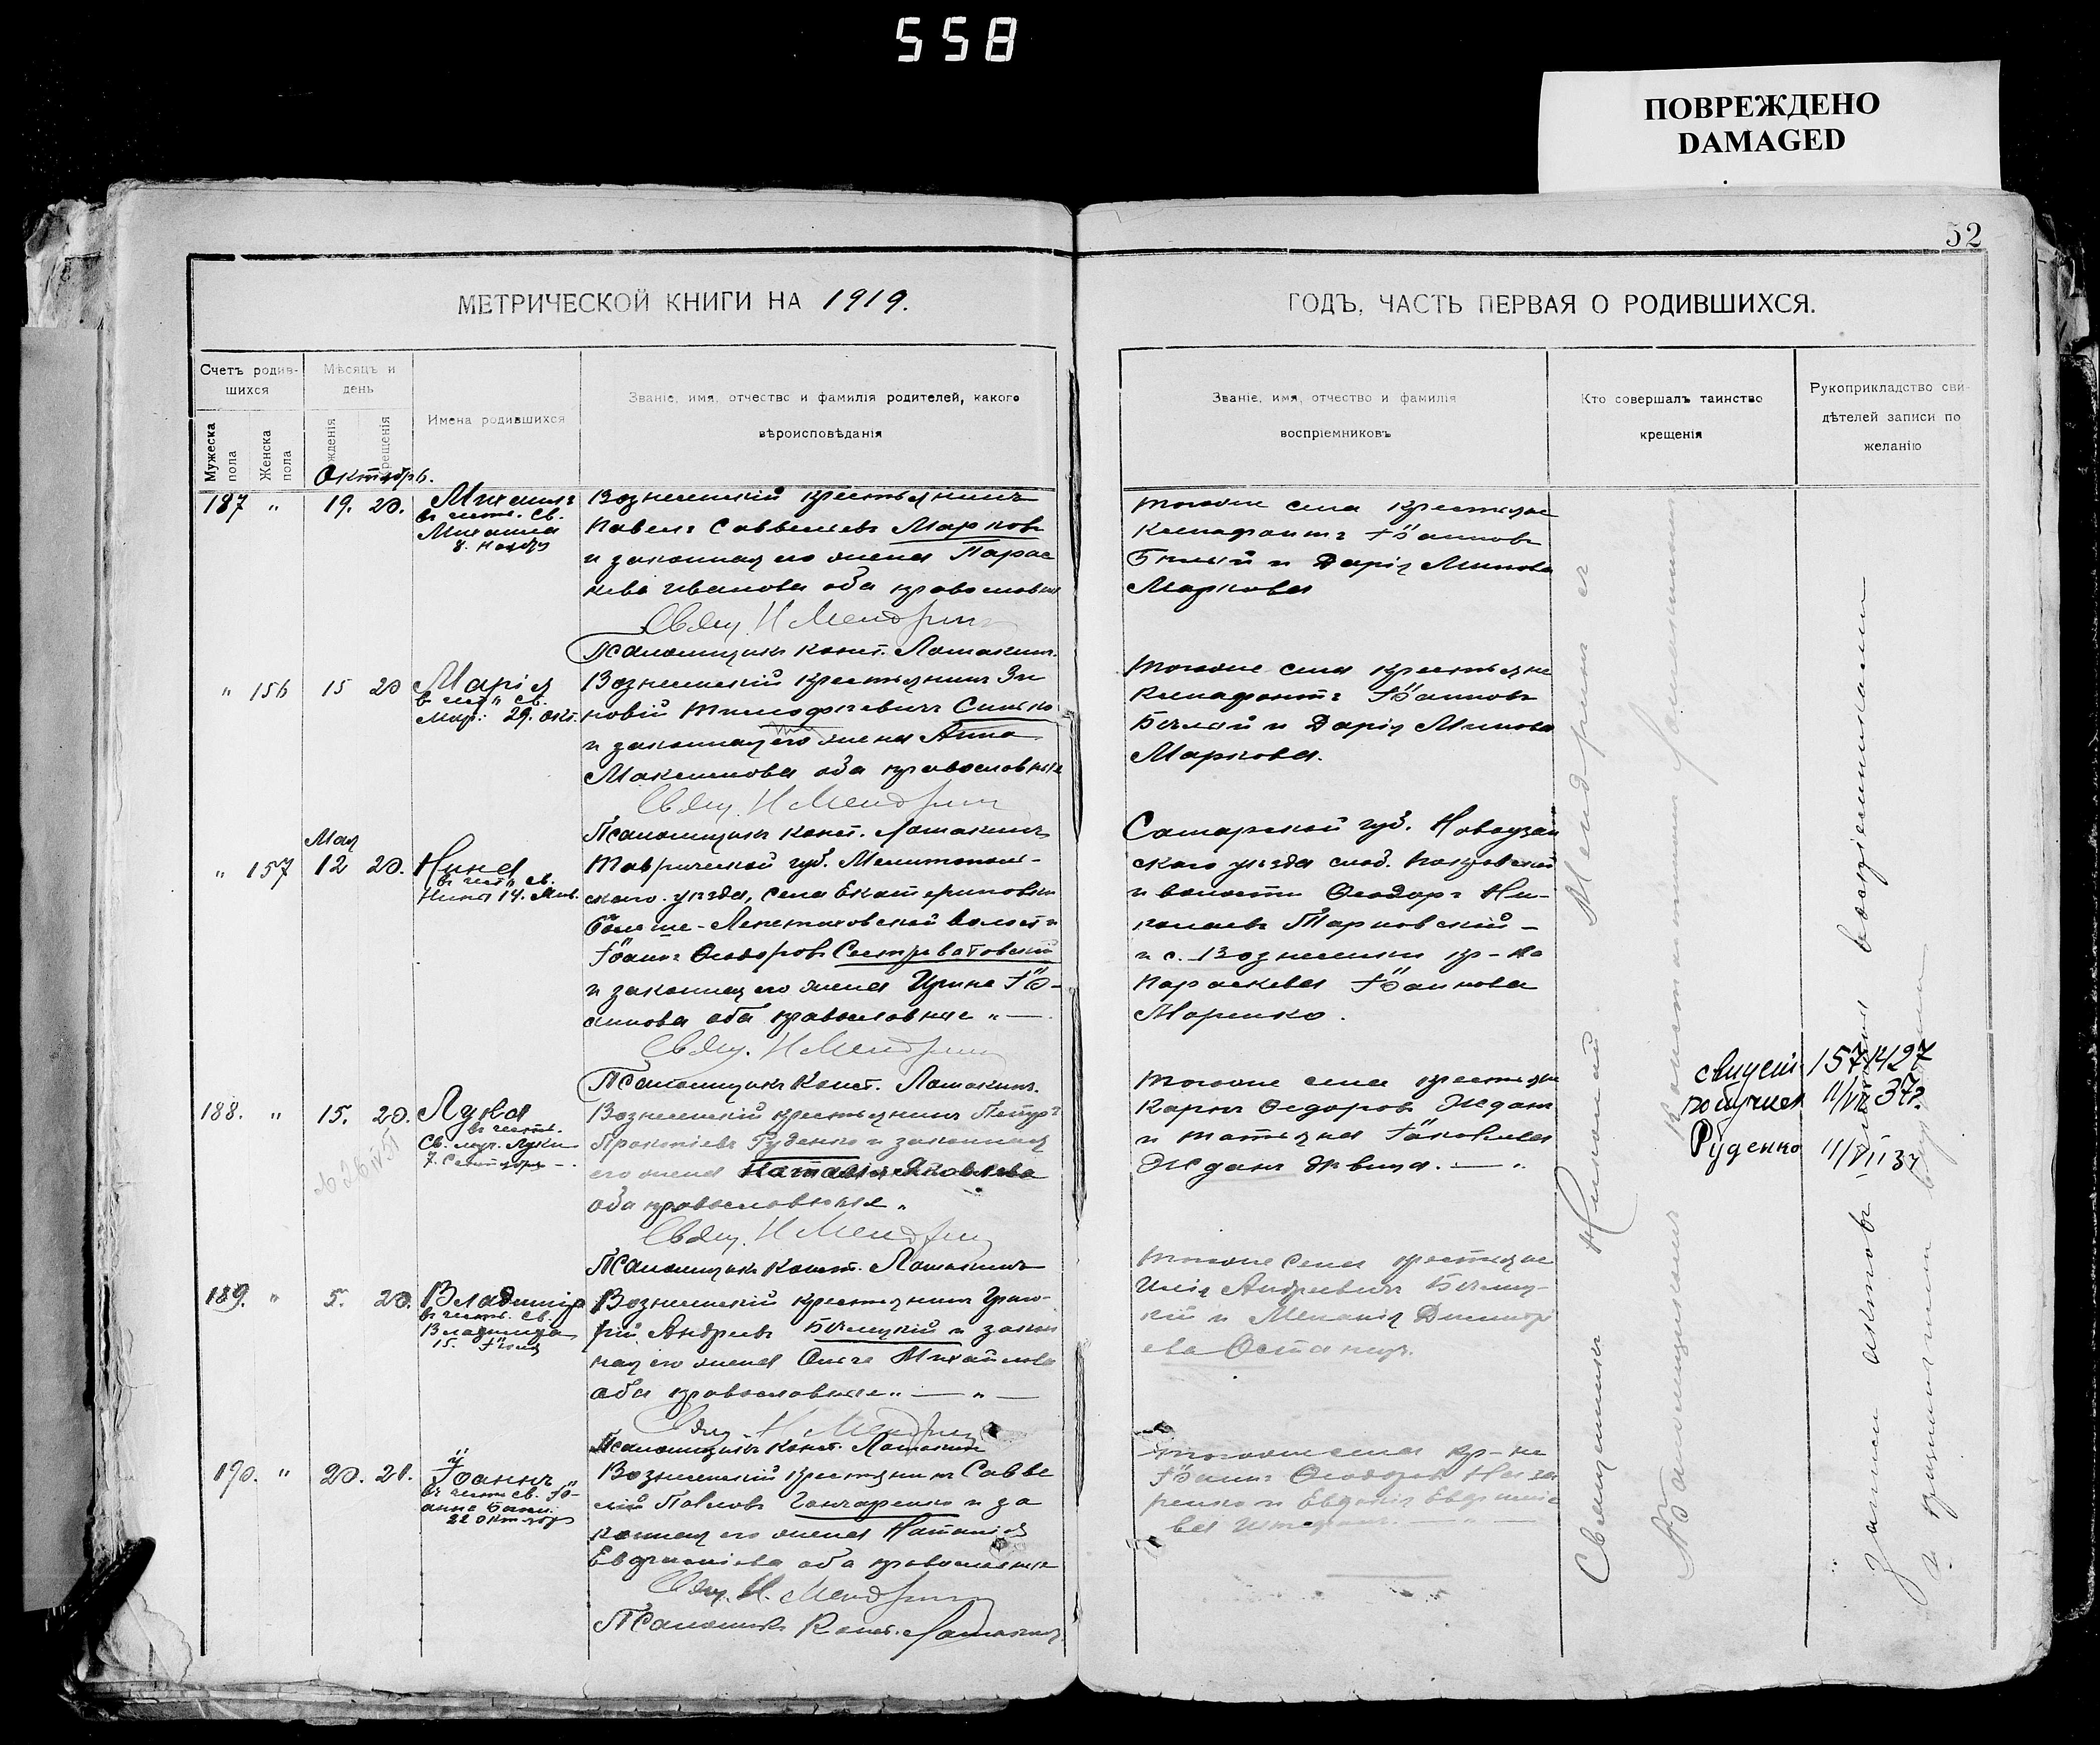 558
ПОВРЕЖДЕНО
DAMAGED
52
МЕТРИЧЕСКОЙ КНИГИ НА 1919.
ГОДЪ, ЧАСТЬ ПЕРВАЯ О РОДИВШИХСЯ.
Счетъ родив-
шихся
Мужеска пола
Женска пола
Мѣсяцъ и
день
рожденія
крещенія
Имена родившихся
Званіе, имя, отчество и фамилія родителей, какого
вѣроисповѣданія
Званіе, имя, отчество и фамилія
воспріемниковъ
Кто совершалъ таинство
крещенія
Рукоприкладство сви-
дѣтелей записи по
желанію
Октябрь.
187 " 19. 20. Михаилъ
въ честь. Св.
Михаила
8. Ноябр
Вознесенскій крестьянинъ
Павелъ Саввеліевъ Марковъ
и законная его жена Парас
кева Иванова оба православн
Свящ. Н Мендрин
Псаломщикъ Конст. Ломакинъ.
тогоже села крестьяне
Ксенофонтъ Іоанновъ
Бѣлый и Дарія Минова
Маркова
" 156 15 20 Марія
въ чест Св.
Мар. 29. окт.
Вознесенскій крестьянинъ Зи
новій Тимофеевичъ Синько
и законная его жена Анна
Максимова оба православные
Свящ Н Мендрин
Псаломщикъ Конст. Ломакинъ
тогоже села крестьяне
Ксенофонтъ Іоанновъ
Бѣлый и Дарія Минова
Маркова.
Мая
" 157 12 20. Нина
въ честь св.
Нины 14. Янв.
Таврической губ. Мелитополь-
скаго уѣзда, села Екатериновки
Больше-Лепетиховской волости
Іоаннъ Ѳеодоровъ
и законная его жена Ирина Іо-
аннова оба православные "
Свящ. Н Мендрин
Псаломщикъ Конст. Ломакинъ.
Самарской губ. Новоузен
скаго уѣзда слоб. Покровской
и волости Ѳеодоръ Ни-
колаевъ Тарновскій -
и с. Вознесенки кр-ка
Параскева Іоаннова
Маренко.
188. " 15. 20. Лука
въ честь.
Св. Луки
7. Сентября
Вознесенскій крестьянинъ Петръ
Прокопіевъ Руденко и законная
его жена Наталія Яковлева
оба православные "
Свящ. Н Мендрин
Псаломщикъ Конст. Ломакинъ
тогоже села крестьяне
Карпъ Ѳедоровъ Жданъ
и Татьяна Іаковлева
Жданъ дѣвица.
157427
получил 11/VII 37г.
Руденко 11/VII 37
189. " 5. 20. Владиміръ
въ честь. Св.
Владиміра
15. Іюля
Вознесенскій крестьянинъ Григо-
рій Андреевъ Бѣлицкій и закон
ная его жена Ольга Михайлова
оба православные "
Свящ. Н Мендрин
Псаломщикъ Конст. Ломакинъ
тогоже села крестьяне
Илія Андреевичъ Бѣлиц-
кій и Меланія Димитрі
ева
190. " 20. 21. Іоаннъ
въ честь св. Іо-
анна
22 октября
Вознесенскій крестьянинъ Савве
лій Павловъ Гончаренко и за
конная его жена Наталія
Евфиміева оба православные
Свящ. Н. Мендрин
Псаломщикъ Конст. Ломакинъ
тогоже села кр-не
Іоаннъ Ѳеодоровъ Наза
ренко и Евдокія Евфиміе
ва
Священникъ Николай Мендринъ съ
Псаломщикомъ Константиномъ Ломакинымъ
записи актовъ воспріемниками